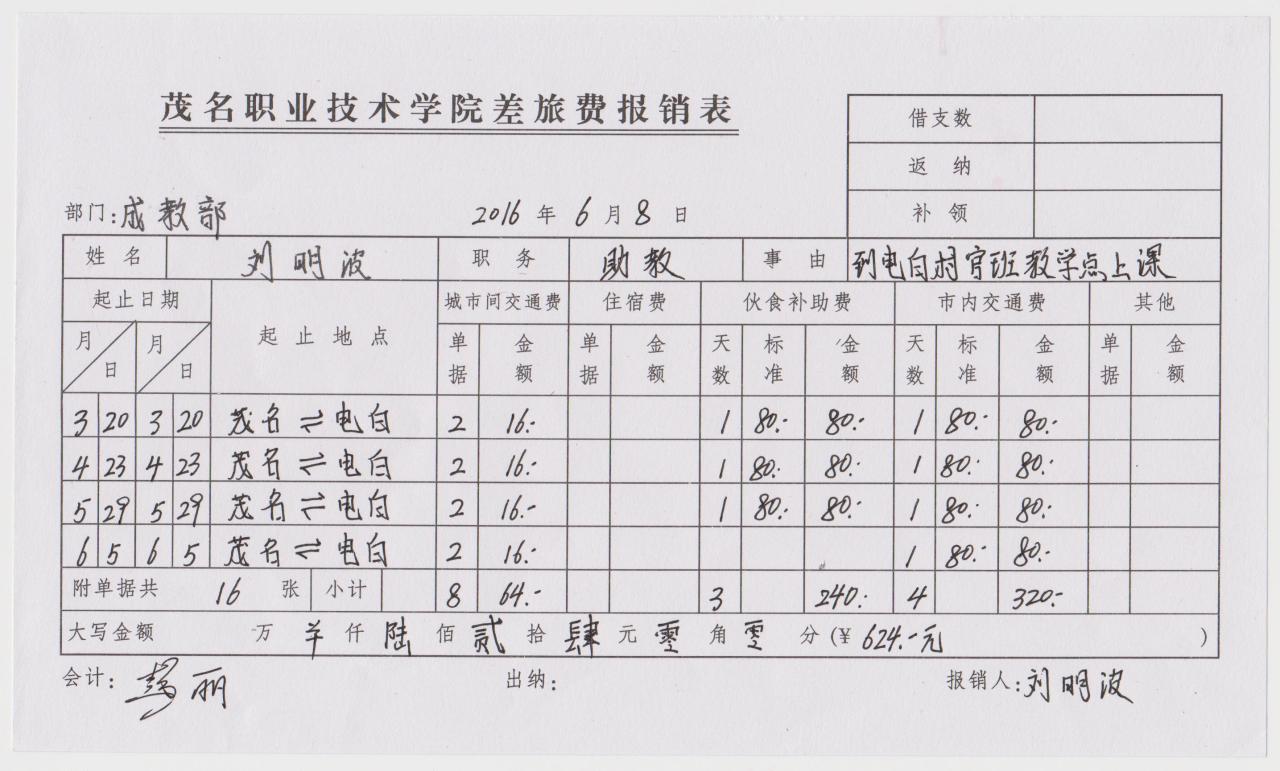 茂名职业技术学院差旅费报销表
借支数
返 纳
补 领
部门:成教部 2016 年 6 月 8 日
姓 名 刘明波 职 务 助教 事 由 到电白村官班教学点上课
起止日期 起 止 地 点 城市间交通费 住宿费 伙食补助费 市内交通费 其他
月 日 月 日 单据 金额 单据 金额 天数 标准 金额 天数 标准 金额 单据 金额
3 20 3 20 茂名⇌电白 2 16.- 1 80.- 80.- 1 80.- 80.-
4 23 4 23 茂名⇌电白 2 16.- 1 80.- 80.- 1 80.- 80.-
5 29 5 29 茂名⇌电白 2 16.- 1 80.- 80.- 1 80.- 80.-
6 5 6 5 茂名⇌电白 2 16.- 1 80.- 80.-
附单据共 16 张 小计 8 64.- 3 240.- 4 320.-
大写金额 万 仟 陆 佰 贰 拾 肆 元 零 角 零 分(¥ 624.-元 )
会计: 丽 出纳: 报销人:刘明波